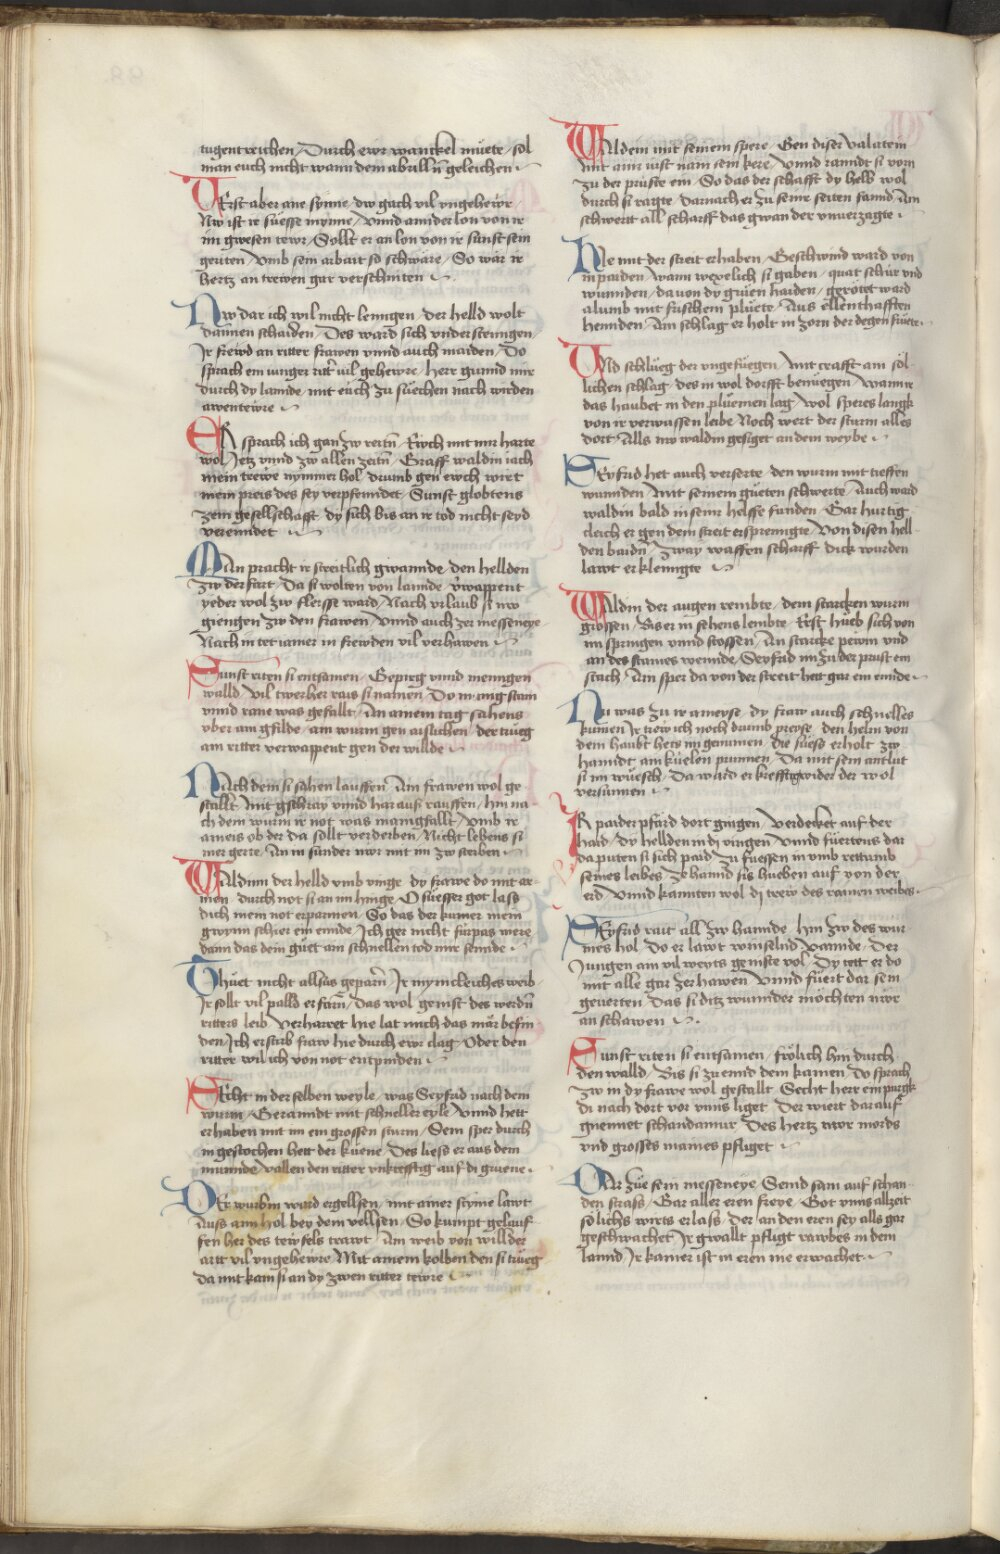 tugentreichen / Durch ewr wanckel müete / sol
man euch nicht wann dem abrilln geleichen
ERst aber ane synne / dw gach vil vngehewr
Nw ist ir süesse mynne / Vnnd annder lon von ir
im gwesen tewr / Sollt er an lon von ir sunst sein
geriten / Vmb sein arbait so schwäre / So wär ir
hertz an trewen gar verschniten
Nw dar ich wil nicht lenngen / der helld wolt
dannen schaiden / Des ward sich vnderstenngen
Ir frewd an ritter frawen vnnd auch maiden / Do
sprach ein iunger ritter vil gehewre / herr gunnd mir
durch dy lannde / mit euch zu süechen nach wirden
awentewre
ER sprach ich gan zw rertn / Ewch mit mir harte
wol / Jetz vnnd zw allen zeitn / Graff waldin iach
mein trewe nymmer hol / drumb gen ewch wirt
mein preis des sey verpfenndet / Sunst globtens
zem gesellschafft / dy sich bis an ir tod nicht seyd
verenndet
MAn pracht ir streitlich gwannde / den hellden
zw der fart / Da si wolten von lannde / v̈rwappent
yeder wol zw fleisse ward / Nach vrlaub si nw
giengen zw den frawen / vnnd auch zer messeneye
Nach in tet iamer in frewden vil verhawen
Sunst riten si entsamen / Gepirg vnnd mennigen
walld / Vil twerher rais si namen / Dy in ring stain
vnnd rane was gefallt / An ainem tag sahens
vber ain gfilde / ain wurm gen aislichen / der trüeg
ain ritter verwappent gen der willde
Nach dem si sahen lauffen / Ain frawen wol ge
stallt / mit gschray vnnd har auß rauffen / hin na
ch dem wurm ir not was manigfallt / Vmb ir
ameis ob der da sollt verderben / Nicht lebens si
mer gerte / Ann sünder nwr mit im zw sterben
WAldinn der helld vmb vinge / dy frawe do mit ar
men / durch not si an im hinge / O süesser got lass
dich mein not erparmen / So das der kumer mein
gwynn schier ein ennde / Ich ger nicht fürpas mere
dann das dein güet ain schnellen tod mir sennde
THüet nicht allsus geparn / Ir mynnckleiches weib
Ir sollt vil palld erfarn / Das wol genist des werdn
ritters leib / Verharret hie lat mich das mär befin
den / Ich erstirb fraw hie durch ewr clag / Oder den
ritter wil ich von not entpinden
REcht in der selben weyle / was Seyfrid nach dem
wurm / Gerannndt mit schneller eyle / Vnnd hett
erhaben mit im ein grossen sturm / Sein sper durch
in gestochen hett der küene / Des liess er aus dem
munnde / vallen den ritter vnkrefftig auf di gruene
DEr wurbm ward ergellsen / mit ainer styme lawt
Auss aim hol bey dem vellsen / So kumpt gelauf
fen her des tewfels trawt / Ain weib von willder
artt vil vngehewre / Mit ainem kolben den si trüeg
da mit kam si an dy zwen ritter tewre
WAldein mit seinem spere / Gen diser valatein
mit ainr iust nam sein kere / Vnnd ranndt si vorn
zu der prüste ein / So das der schafft dy helb wol
durch si ragte / darnach er zu seinr seiten sannd / Ain
schwertt all scharff das gwan der vnuerzagte
NIe mit der streit erhaben / Geschwind ward von
in paiden / wann wexelich si gaben / quat schür vnd
wunnden / dauon dy grüen haiden / gerötet ward
alumb mit frischem plüete / Aus ellenthafften
hennden / Ain schlag er holt in zorn der degen früete
VNd schlüeg der vngefüegen / mit crafft ain söl
lichen schlag / des in wol dorfft benüegen / Wann ir
das haubet in den plüemen lag / Wol spers langk
von ir verwassen leibe / Noch wert der sturm alles
dort / Alls nw waldin gesiget an dem weybe
SEyfrid het auch verserte / den wurm mit tieffen
wunnden / mit seinem güeten schwerte / Auch ward
waldin bald in seinr helffe funden / Gar hurtig
cleich er gen dem streit ersprenngte / Von disen hell
den baidn / zway waffen scharff dick wurden
lawt erklenngte
WAldin der augen rembte / dem starcken wurm
grossen / Bis er in sehens lembte / Erst hüeb sich von
im springen vnnd stossen / An starcke pewm vnd
an des staines wennde / Seyfrid im zu der prust ein
stach / Ain sper da von der streit hett gar ein ennde
Nu was zu ir ameyse / dy fraw auch schnelles
kumen / Ir trew ich noch drumb preyse / den helm von
dem haubt hetz im genumen / die süess erholt zw
hanndt / aim küelen prunnen / Da mit sein antlüt
si im wüesch / Da ward er krefftig wider der wol
versunnen
IR paider pfärd dort gingen / Verdecket auf der
haid / Dy hellden in di vingen / Vnnd füertens dar
da puten si sich paid / Zu fuessen in vmb rettumb
seines leibes / Ze hannd sis hueben auf von der
erd / Vnnd kannten wol di trew des rainen weibes
SEyfrid rait all zw hannde / hin zw des wur
mes hol / Do er lawt winselnd vannde / Der
Jungen ain vil weyts geniste vol / Dy tett er do
mit alle gar zerhawen / Vnnd füert dar sein
geuerten / Das si ditz wunnder möchten nwr
an schawen
Sunst riten si entsamen / frölich hin durch
den walld / Bis si zu ennd dem kamen / Do sprach
zw in dy frawe wol gestallt / Secht herr ein purgk
di nach dort vor vnns liget / Der wiert darauf
gnennet schandamur / Des hertz nwr mords
vnd grosses maines pfliget
DAr züe sein messeneye / Sennd sam auf schan
den strass / Gar aller eren freye / Got vnns allzeit
sölichs wirts erlass / der an den eren sey alls gar
geschwachet / Ir gwallt pfligt rawbes in dem
lannd / Ir kamer ist in eren nie erwachet